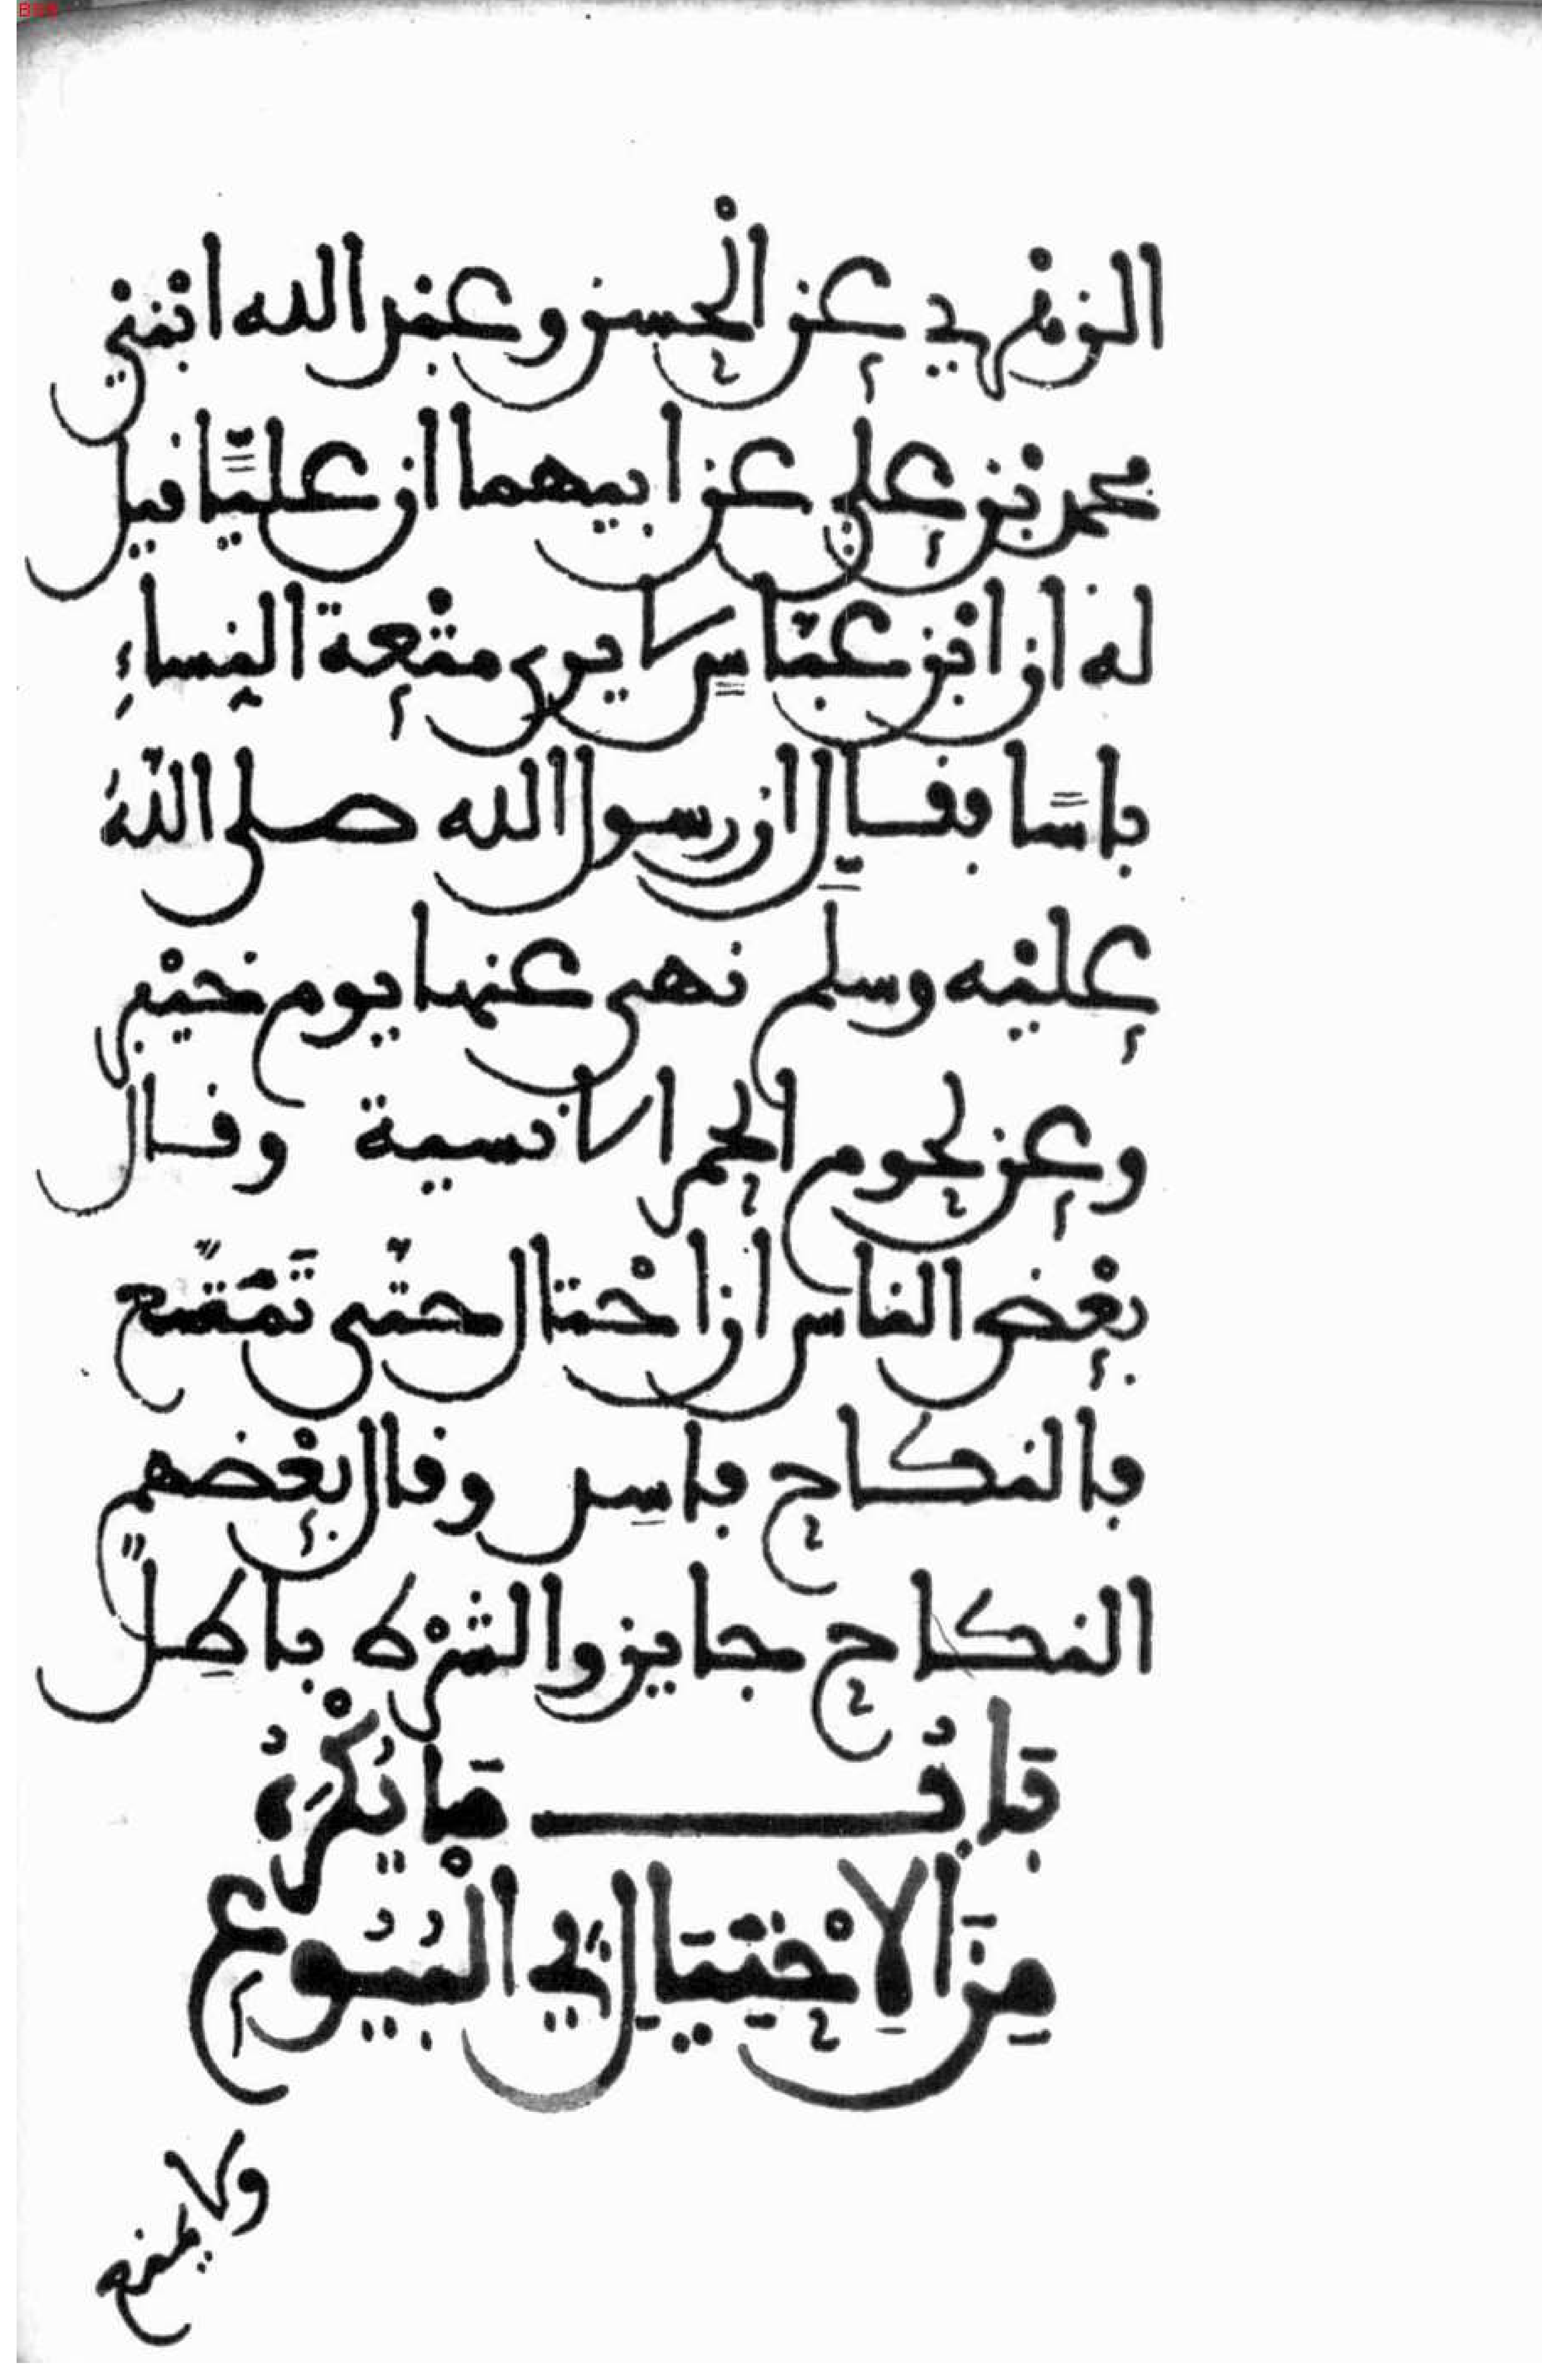 الزهري عن الْحسن وعبد الله ابْني
محمد بْن علي عن ابيهما ان عليًّا قيل
له ان ابْن عبّاسٍ لا يرى متْعة النِساءِ
باسًا فقالَ ان رسول الله صلى اللّهُ
عليْه وسلم نهى عنها يوم خيْبر
وعن لحوم الحمر الانسية وقال
بعْض الناس ان احْتال حتّى تَمَتّع
فالنكاح فاسِد وقال بعْضهم
النكاح جايز والشرْط باطِلٌ
بَابُ مَا يُكْرَهُ
مِنَ الاِحْتِيَالِ فِي الْبُيُوع
ولا يمنع
BSB